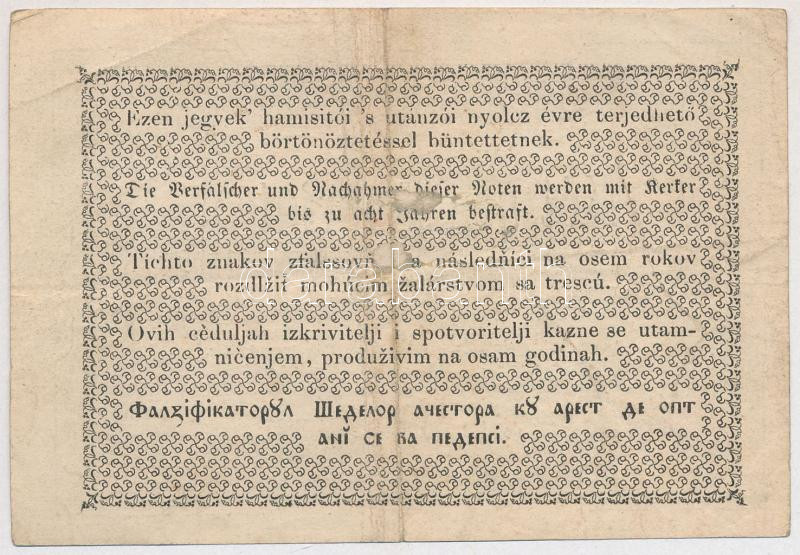 Ezen jegyek' hamisitói 's utánzói nyolcz évre terjedhető
börtönöztetéssel büntettetnek.
Die Verfälscher und Nachahmer dieser Noten werden mit Kerker
bis zu acht Jahren bestraft.
Tichto znakov zfalšovň a následňíci na osem rokov
rozdlžiť mohúcim žalárstvom sa trescú.
darabanth
Ovih cèduljah izkrivitelji i spotvoritelji kazne se utam-
ničenjem, produživim na osam godinah.
Фалꙁіфікаторꙋл Шеделор ачестора кꙋ арест де опт
анĭ се ва педепсі.